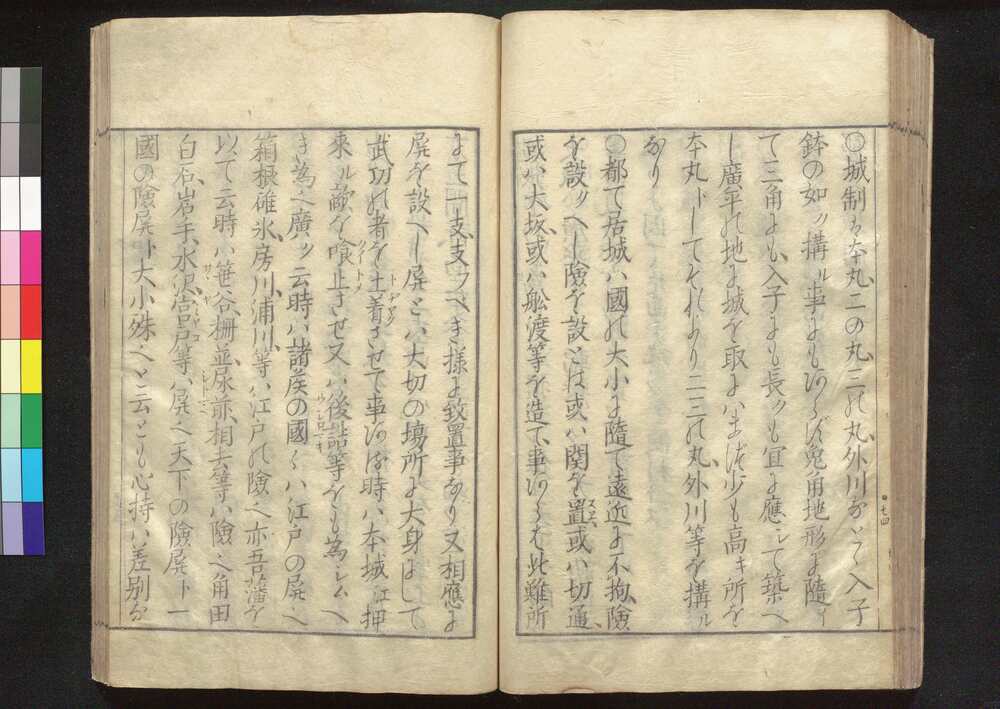 〇城制ハ本丸二の丸三の丸外川などゝ入子
鉢の如ク構ル事にもあらず兎角地形に随ひ
て三角にも入子にも長クも宜に應じて築べ
し廣平の地に城を取にハまづ少も高キ所を
本丸トしてそれより二三の丸外川等を構ル
なり
〇都て居城ハ國の大小に隨て遠近に不拘險
を設ツべし險を設とは或ハ関を置或ハ切通
或ハ大坂或ハ舩渡等を造て事あらば此難所
にて一支支ツべき様に致置事なり又相應に
屏を設べし屏とハ大切の場所に大身にして
武功の者を土着させて事ある時ハ本城江押
來ル敵を喰止させ又ハ後詰等をも為しムべ
き為へ廣ク云時ハ諸侯の國々ハ江戸の屏へ
箱根碓氷房川浦川等ハ江戸の險へ亦吾藩を
以て云時ハ笹谷柵並尿前相去等ハ險へ角田
白石岩手水沢等ハ屏へ天下の險屏ト一
國の險屏ト大小殊へと云とも心持ハ差別な
七四